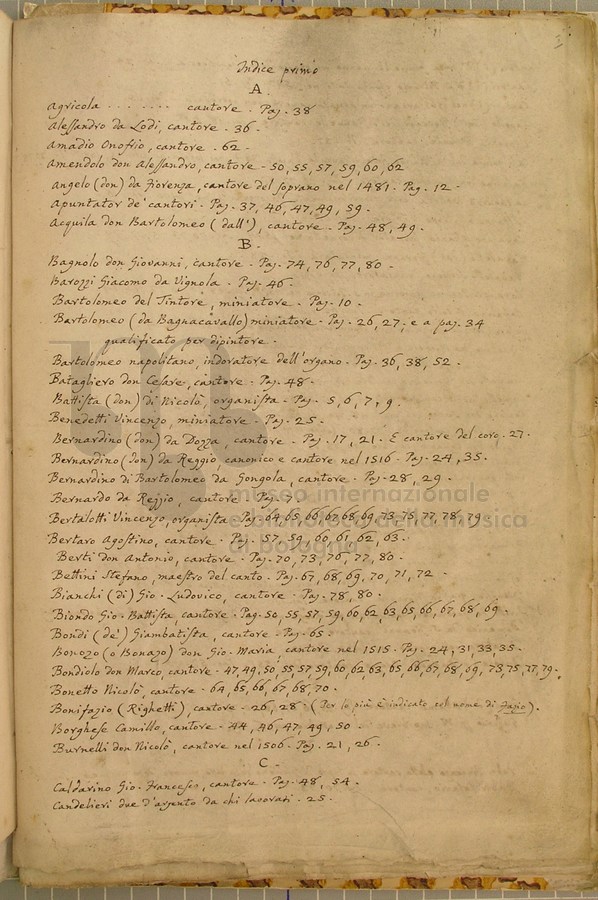 Indice primo
A.
Agricola . . . . . . . . cantore. Pag. 38
Alessandro da Lodi, cantore. 36.
Amadio Onofrio, cantore. 62.
Amendolo don Alessandro, cantore. 50, 55, 57, 59, 60, 62
Angelo (don) da Fiorenza, cantore del soprano nel 1481. Pag. 12.
Apuntator de' cantori. Pag. 37, 46, 47, 49, 59.
Acquila don Bartolomeo (dall'), cantore. Pag. 48, 49.
B.
Bagnolo don Giovanni, cantore. Pag. 74, 76, 77, 80.
Barozzi Giacomo da Vignola. Pag. 46.
Bartolomeo del Tintore, miniatore. Pag. 10.
Bartolomeo (da Bagnacavallo) miniatore. Pag. 26, 27; e a pag. 34
qualificato per dipintore.
Bartolomeo napolitano, indoratore dell'organo. Pag. 36, 38, 52.
Batagliero don Cesare, cantore. Pag. 48.
Battista (don) di Nicolò, organista. Pag. 5, 6, 7, 9.
Benedetti Vincenzo, miniatore. Pag. 25.
Bernardino (don) da Dozza, cantore. Pag. 17, 21. E cantore del coro. 27.
Bernardino (don) da Reggio, canonico e cantore nel 1516. Pag. 24, 35.
Bernardino di Bartolomeo da Gongola, cantore. Pag. 28, 29.
Bernardo da Reggio, cantore. Pag. 7.
Bertalotti Vincenzo, organista. Pag. 64, 65, 66, 67, 68, 69, 73, 75, 77, 78, 79.
Bertaro Agostino, cantore. Pag. 57, 59, 60, 61, 62, 63.
Berti don Antonio, cantore. Pag. 70, 73, 76, 77, 80.
Bettini Stefano, maestro del canto. Pag. 67, 68, 69, 70, 71, 72.
Bianchi (di) Gio. Ludovico, cantore. Pag. 78, 80.
Biondo Gio. Battista, cantore. Pag. 50, 55, 57, 59, 60, 62, 63, 65, 66, 67, 68, 69.
Bondi (de') Giambatista, cantore. Pag. 65.
Bonozo (o Bonazo) don Gio. Maria, cantore nel 1515. Pag. 24, 31, 33, 35.
Bondiolo don Marco, cantore. 47, 49, 50, 55, 57, 59, 60, 62, 63, 65, 66, 67, 68, 69, 73, 75, 77, 79.
Bonetto Nicolò, cantore. 64, 65, 66, 67, 68, 70.
Bonifazio (Righetti), cantore. 26, 28. (Per lo più è indicato col nome di Fazio).
Borghese Camillo, cantore. 44, 46, 47, 49, 50.
Burnelli don Nicolò, cantore nel 1506. Pag. 21, 26.
C.
Caldarino Gio. Francesco, cantore. Pag. 48, 54.
Candelieri due d'argento da chi lavorati. 25.
museo internazionale
e biblioteca della musica
di bologna